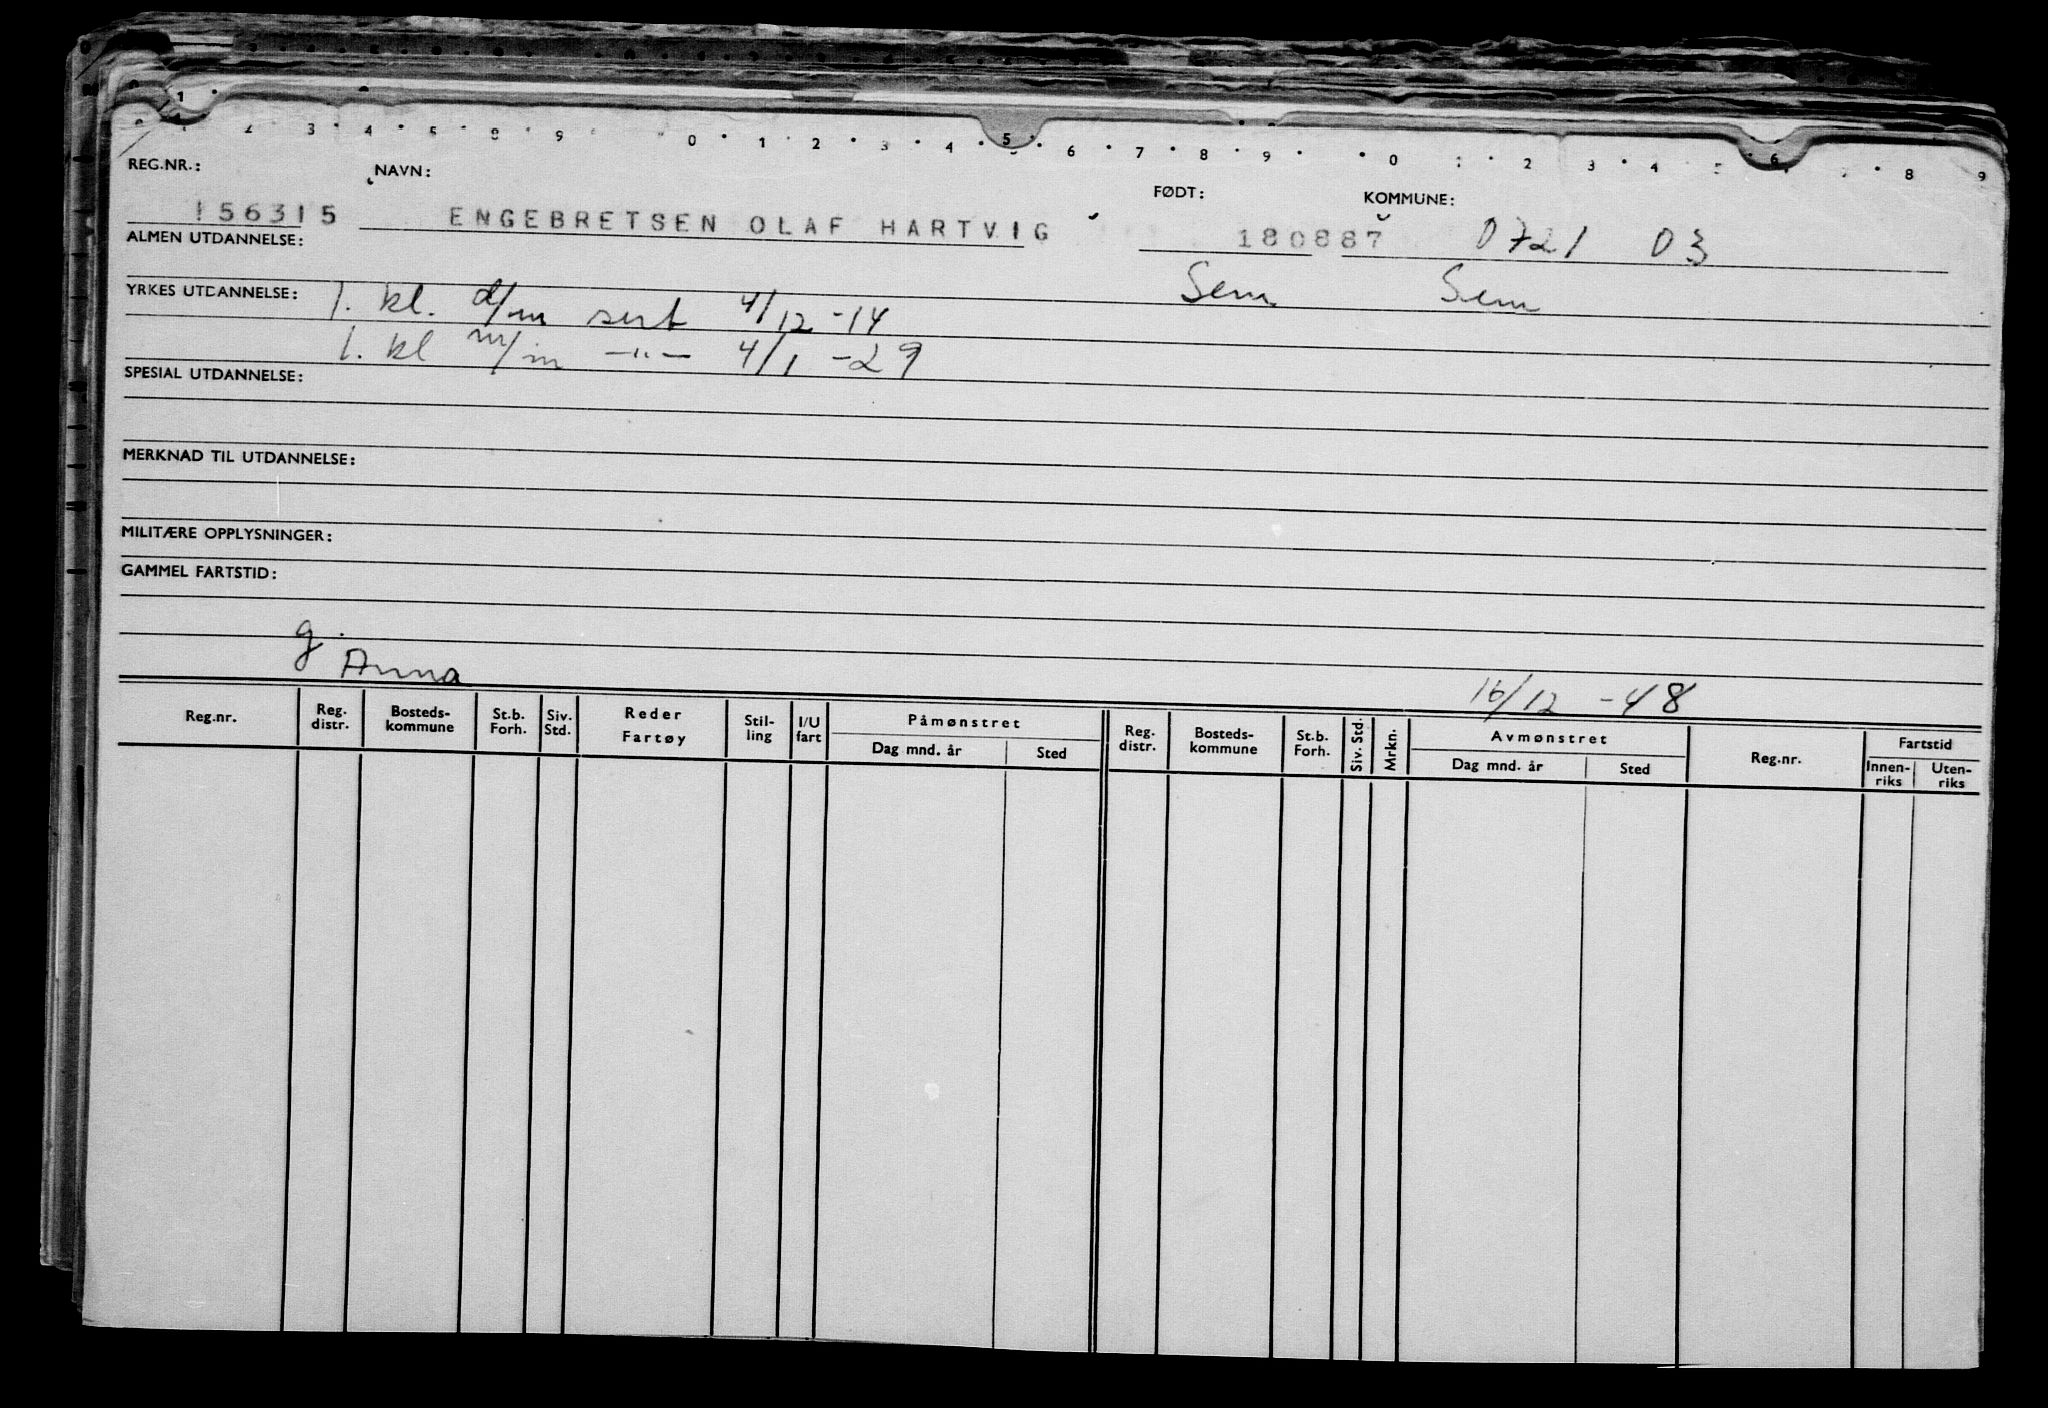 1
2 3 4 5 8 9 0 1 2 3 4 5 6 7 8 9 0 1 2 3 4 5 6 8 9
REG.NR.: NAVN: FØDT: KOMMUNE:
156315 ENGEBRETSEN OLAF HARTVIG 180887 0721 03
ALMEN UTDANNELSE:
Sem Sem
YRKES UTDANNELSE: 1. kl. d/m sert 4/12 -14
1. kl m/m —"— 4/1 -29
SPESIAL UTDANNELSE:
MERKNAD TIL UTDANNELSE:
MILITÆRE OPPLYSNINGER:
GAMMEL FARTSTID:
g. Anna
16/12 -48
Reg.nr. Reg. distr. Bosteds-kommune St.b. Forh. Siv. Std. Reder Fartøy Stil-ling I/U fart Påmønstret Dag mnd. år Sted Reg. distr. Bosteds-kommune St.b. Forh. Siv. Std. Mrkn. Avmønstret Dag mnd. år Sted Reg.nr. Fartstid Innen-riks Uten-riks